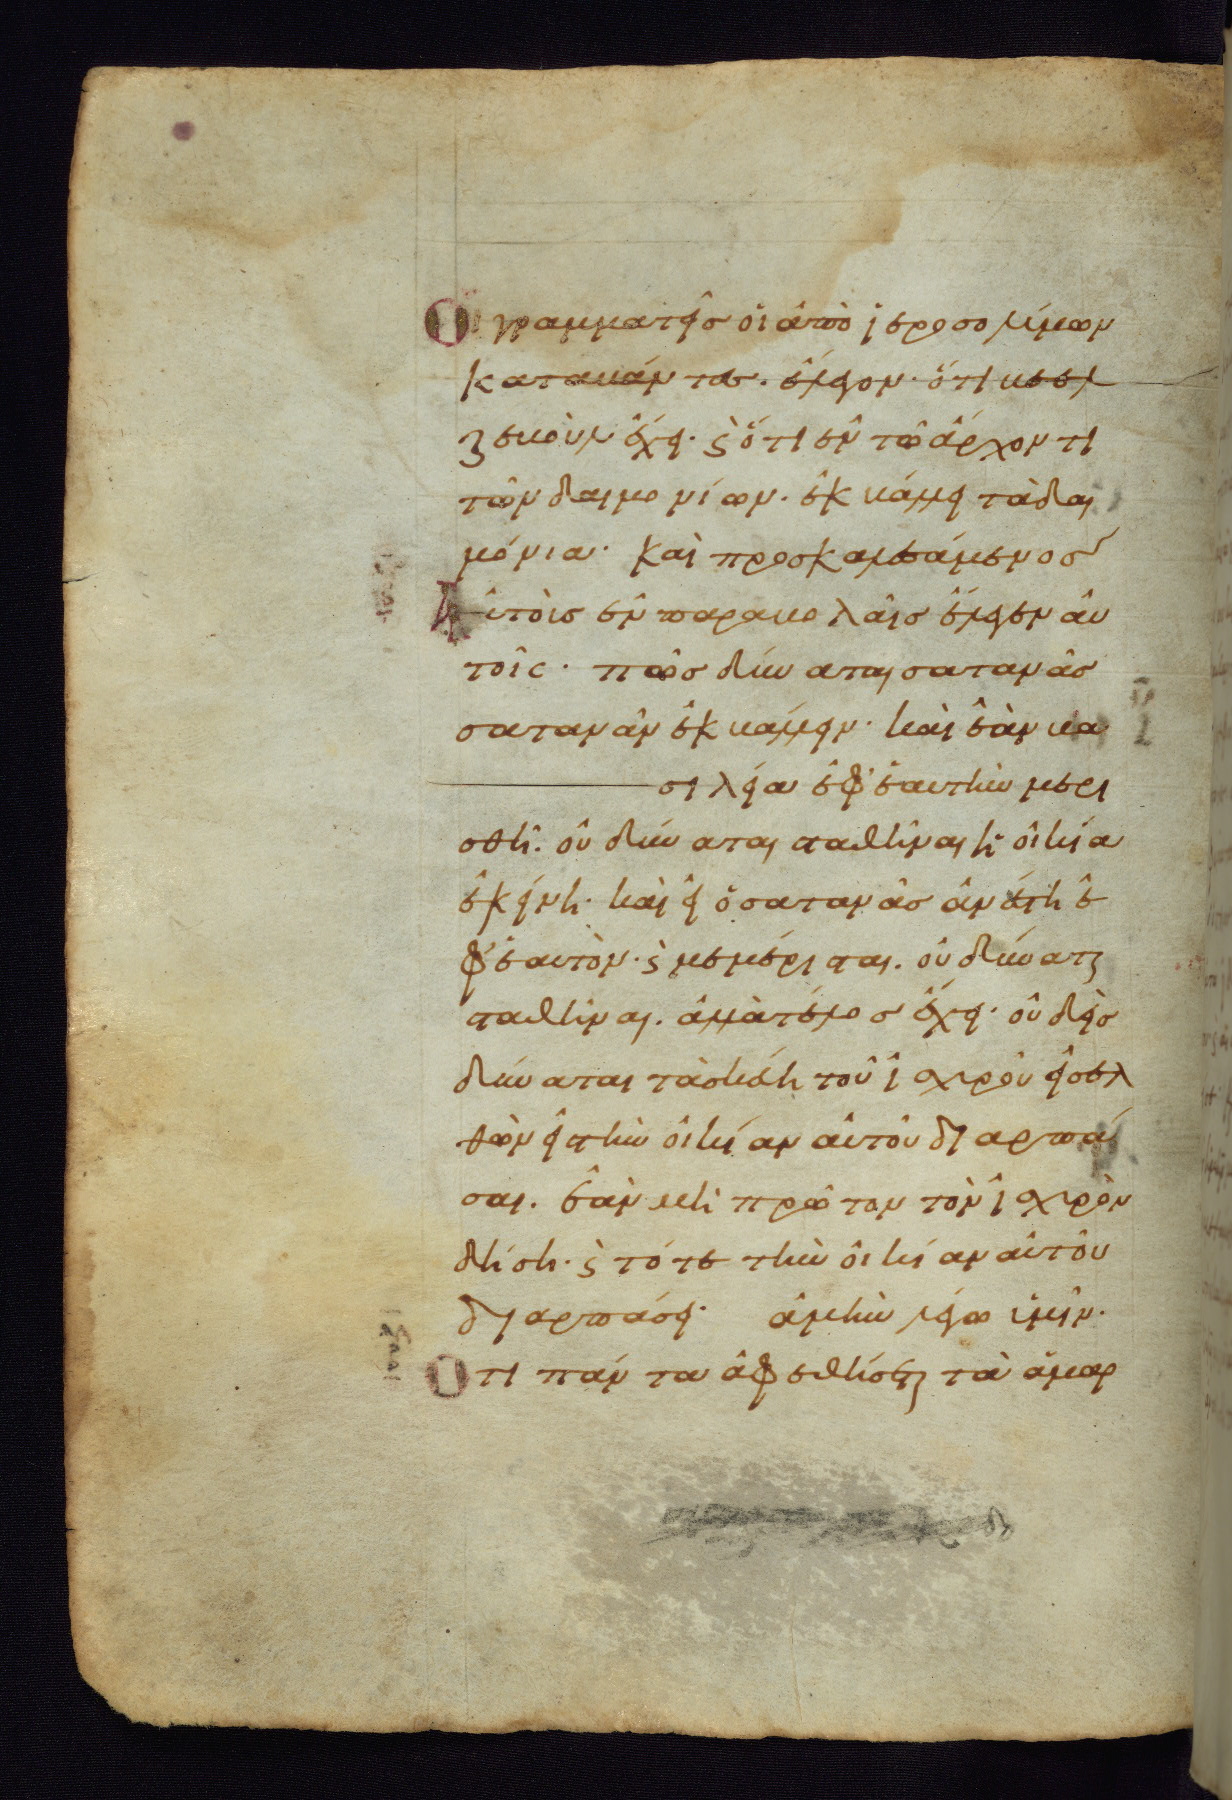 Οἱ γραμματεῖς οἱ ἀπὸ ἱεροσολύμων
καταβάντες. ἔλεγον· ὅτι βεελ
ζεβοὺλ ἔχει· ϛ ὅτι ἐν τῶ ἄρχοντι
τῶν δαιμονίων. ἐκβάλλει τὰ δαι
μόνια· καὶ προσκαλεσάμενος
Αὐτοὺς ἐν παραβολαῖς ἔλεγεν αὐ
τοῖς· πῶς δύναται σατανᾶς
σατανᾶν ἐκβάλλειν· καὶ ἐὰν βα
σιλεία ἐφ' ἑαυτὴν μερι
σθῆ. οὐ δύναται σταθῆναι ἡ οἰκία
ἐκείνη· καὶ εἰ ὁ σατανᾶς ἀνέστη ἐ
φ' ἑαυτὸν· ϛ μεμέρισται. οὐ δύναται
σταθῆναι. ἀλλὰ τέλος ἔχει· οὐδεὶς
δύναται τὰ σκεύη τοῦ ἰσχυροῦ εἰσελ
θὼν εἰς τὴν οἰκίαν αὐτοῦ διαρπά
σαι. ἐὰν μὴ πρῶτον τὸν ἰσχυρὸν
δήση· ϛ τότε τὴν οἰκίαν αὐτοῦ
διαρπάσει· ἀμὴν λέγω ὑμῖν·
Ὅτι πάντα ἀφεθήσεται τὰ ἁμαρ